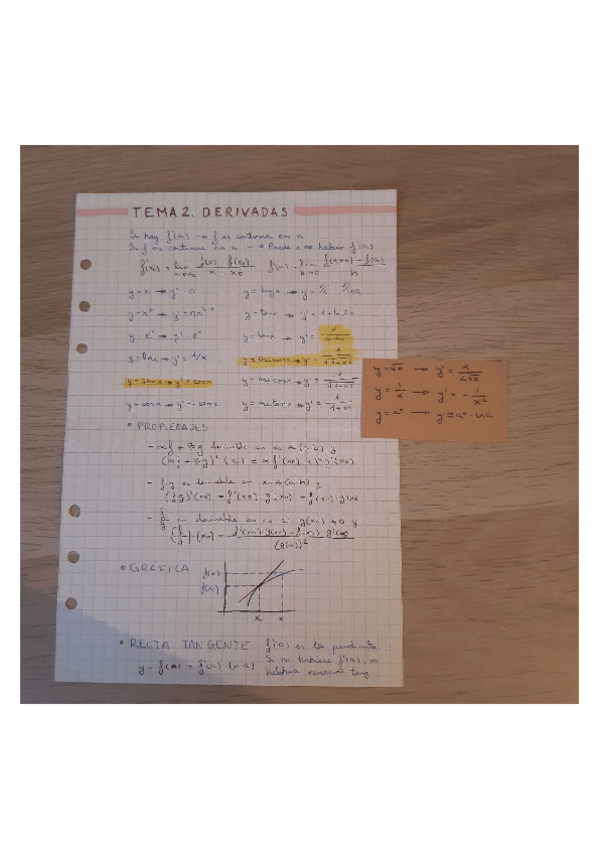 TEMA 2. DERIVADAS
Si hay f'(a) → f es continua en a
Si f es continua en a → Puede o no haber f'(a)
f'(x₀) = lim x→x₀ f(x) - f(x₀) / x - x₀    f'(a) = lim h→0 f(a+h) - f(a) / h
y = k → y' = 0
y = xⁿ → y' = nxⁿ⁻¹
y = eˣ → y' = eˣ
y = lnx → y' = 1/x
y = senx → y' = cosx
y = cosx → y' = -senx
y = logx → y' =
y = tanx → y' = 1 + tan²x
y = tanx → y' = 1 / cos²x
y = arcsenx → y' = 1 / √1-x²
y = arccosx → y' = -1 / √1-x²
y = arctanx → y' = 1 / 1+x²
y = √x → y' = 1 / 2√x
y = 1/x → y' = - 1/x²
y = aˣ → y' = aˣ · lna
• PROPIEDADES
- αf + βg derivable en x₀ ∈ (a,b) y
(αf + βg)'(x₀) = αf'(x₀) + βg'(x₀)
- f·g es derivable en x₀ ∈ (a,b) y
(fg)'(x₀) = f'(x₀) · g(x₀) + f(x₀) · g'(x₀)
- f/g es derivable en x₀ si g(x₀) ≠ 0 y
(f/g)'(x₀) = f'(x₀) · g(x₀) - f(x₀) · g'(x₀) / (g(x₀))²
• GRÁFICA
f(x)
f(x₀)
x₀ x
• RECTA TANGENTE
y - f(a) = f'(a) · (x-a)
f'(a) es la pendiente.
Si no hubiese f'(a), no